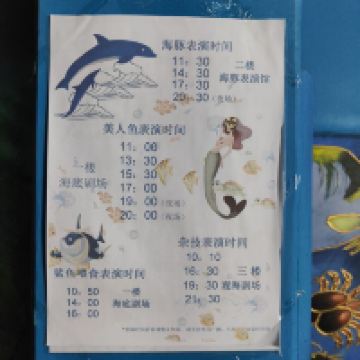 海豚表演时间
11：30
14：30 二楼
17：30 海豚表演馆
20：30（夜场）
美人鱼表演时间
11：00
13：30 一楼
15：30 海底剧场
17：00
19：00（夜场）
20：00（夜场）
鲨鱼喂食表演时间
10：50 一楼
14：00 海底剧场
16：00
杂技表演时间
10：10
16：30 三楼
19：30 观海剧场
21：30